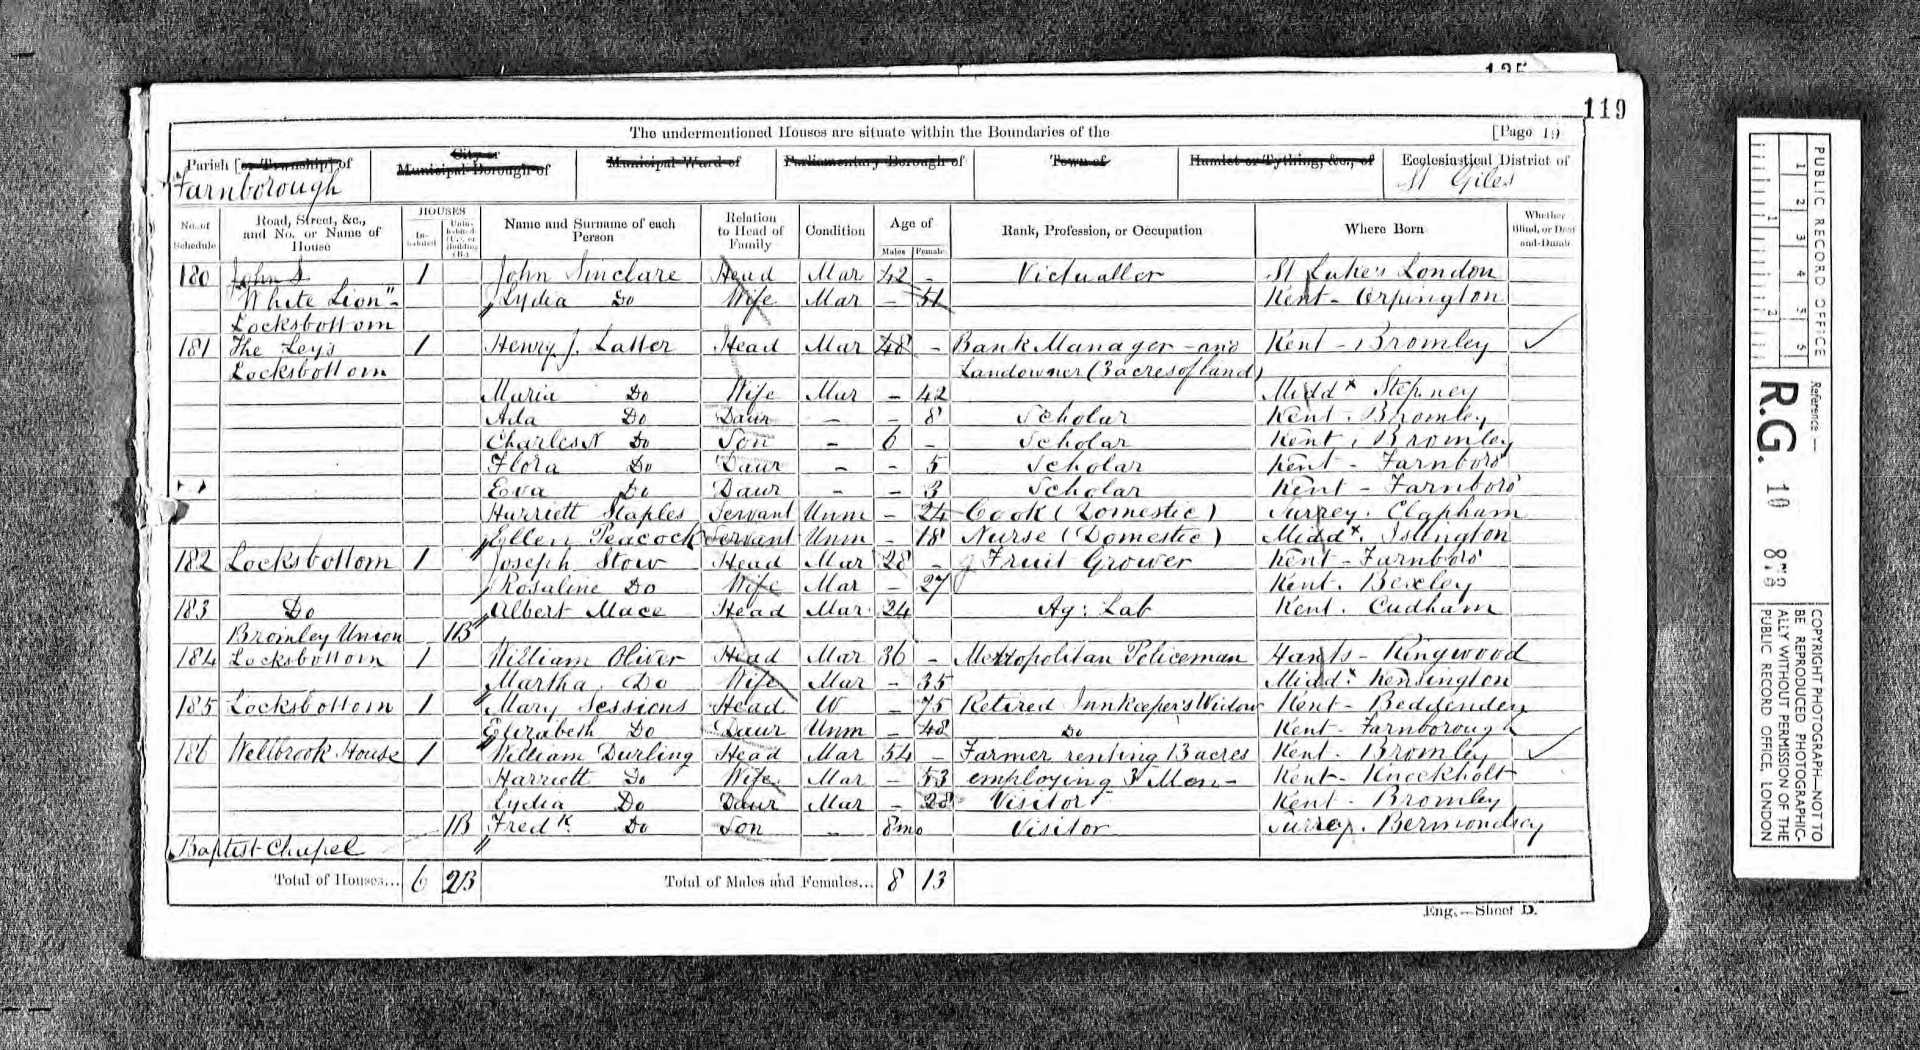 135
119
The undermentioned Houses are situate within the Boundaries of the [Page 19
Parish [or Township] of City or Municipal Borough of Municipal Ward of Parliamentary Borough of Town of Hamlet or Tything, &c., of Ecclesiastical District of
Farnborough St Giles
No. of Schedule Road, Street, &c., and No. or Name of House HOUSES Inhabited Uninhabited (U.), or Building (B.) Name and Surname of each Person Relation to Head of Family Condition Age of Males Females Rank, Profession, or Occupation Where Born Whether Blind, or Deaf-and-Dumb
180 John S 1 John Sinclare Head Mar 42 - Victualler St Luke's London
"White Lion" - Lydia Do Wife Mar - 51 Kent - Orpington
Locksbottom
181 The Leys 1 Henry J. Latter Head Mar 48 - Bank Manager - and Kent - Bromley
Locksbottom Landowner (3 acres of land)
Maria Do Wife Mar - 42 Middx Stepney
Ada Do Daur - - 8 Scholar Kent. Bromley
Charles N Do Son - 6 - Scholar Kent. Bromley
Flora Do Daur - - 5 Scholar Kent - Farnboro'
Eva Do Daur - - 3 Scholar Kent - Farnboro'
Harriett Staples Servant Unm - 24 Cook (Domestic) Surrey. Clapham
Ellen Peacock Servant Unm - 18 Nurse (Domestic) Middx. Islington
182 Locksbottom 1 Joseph Stow Head Mar 28 - Fruit Grower Kent - Farnboro'
Rosaline Do Wife Mar - 27 Kent. Bexley
183 Do Albert Mace Head Mar 24 Ag: Lab Kent. Cudham
Bromley Union 1B
184 Locksbottom 1 William Oliver Head Mar 36 - Metropolitan Policeman Hants - Ringwood
Martha Do Wife Mar - 35 Middx Kensington
185 Locksbottom 1 Mary Sessions Head W - 75 Retired Innkeeper's Widow Kent - Beddenden
Elizabeth Do Daur Unm - 48 Do Kent - Farnborough
186 Wellbrook House 1 William Durling Head Mar 54 - Farmer renting 13 acres Kent. Bromley
Harriett Do Wife Mar - 53 employing 3 Men - Kent - Knockholt
Lydia Do Daur Mar - 28 Visitor Kent - Bromley
1B Fredk. Do Son - 8mo Visitor Surrey. Bermondsey
Baptist Chapel
Total of Houses... 6 2B Total of Males and Females... 8 13
Eng.—Sheet D.
PUBLIC RECORD OFFICE
1 2 3 4 5 6
1 2
Reference :—
R.G. 10 878
COPYRIGHT PHOTOGRAPH—NOT TO
BE REPRODUCED PHOTOGRAPHIC-
ALLY WITHOUT PERMISSION OF THE
PUBLIC RECORD OFFICE, LONDON